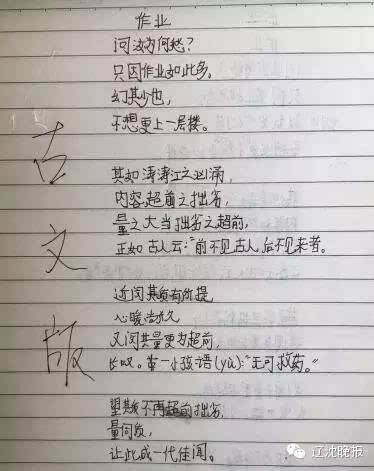 作业
问汝为何愁？
只因作业如此多，
幻其少也，
不想更上一层楼。
其如滂湃江之汹涌，
内容超前之拙劣，
量之大当拙劣之超前，
正如古人云："前不见古人，后不见来者。
近闻其质有所提
心暖尚久
又闻其量更为超前
长叹。革一小孩语(yù)："无可救药。"
望其不再超前拙劣，
量同质，
让此成一代佳闻。
古文版
辽沈晚报